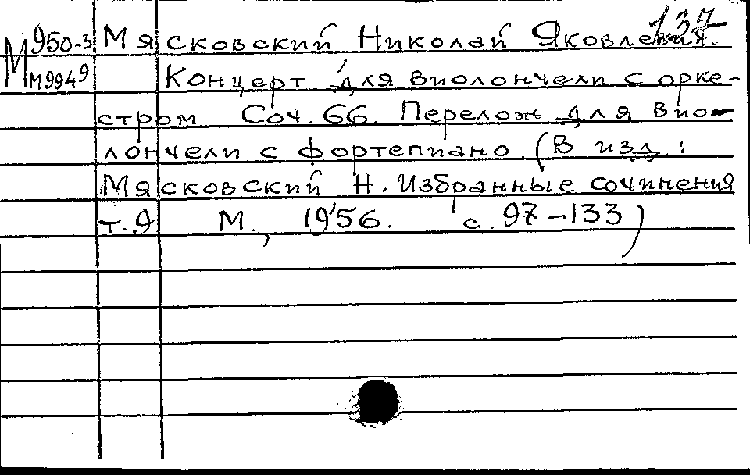 137
М 950-3 Мясковский Николай Яковлевич.
М9949 Концерт для виолончели с орке-
стром Соч. 66. Перелож для вио-
лончели с фортепиано (В изд.:
Мясковский Н. Избранные сочинения
т. 9 М., 1956. с. 97-133)